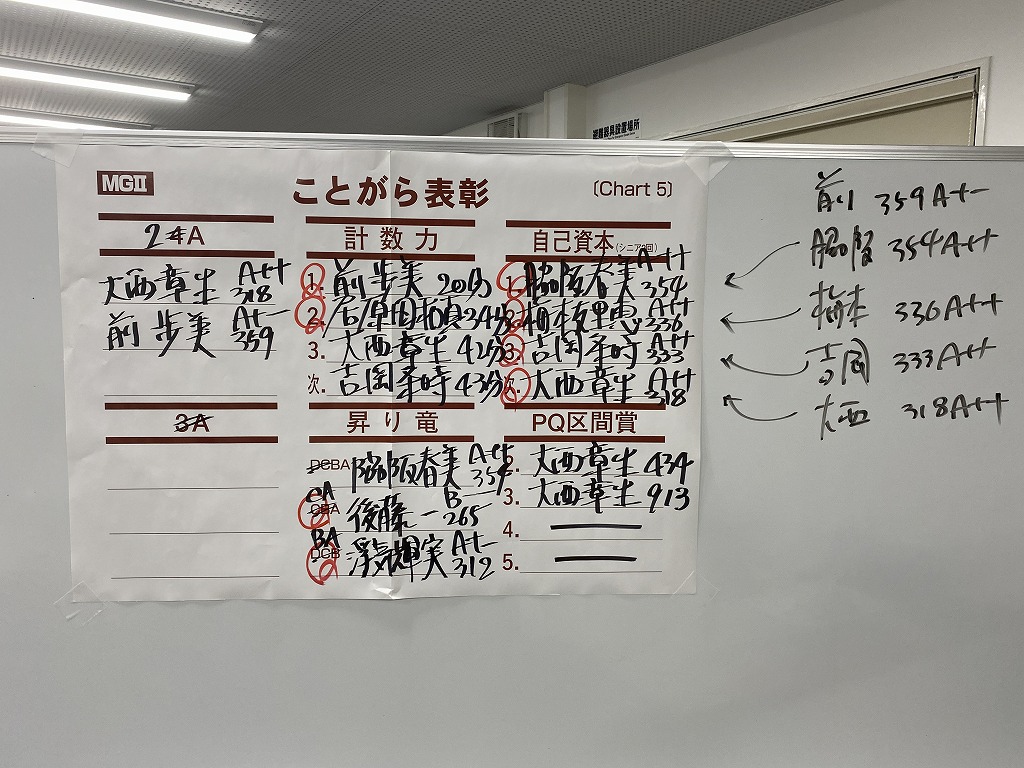 避難器具設置場所
MGⅡ
ことがら表彰
〔Chart 5〕
2 4A
大西章生 A++ 318
前 歩美 A+- 359
計数力
1. 前 歩美 20分
2. 34分
3. 大西章生 42分
次. 吉岡 43分
自己資本(シニア2回)
1. 脇阪春美 A++ 354
2. A++ 336
3. 吉岡 A++ 333
次. 大西章生 A++ 318
3A
昇り竜
DCBA 脇阪春美 A++ 354
CA CBA 後藤一 B-- 265
BA DCB 輝実 A+- 312
PQ区間賞
2. 大西章生 434
3. 大西章生 913
4.
5.
前 359A+-
脇阪 354A++
336A++
吉岡 333A++
大西 318A++